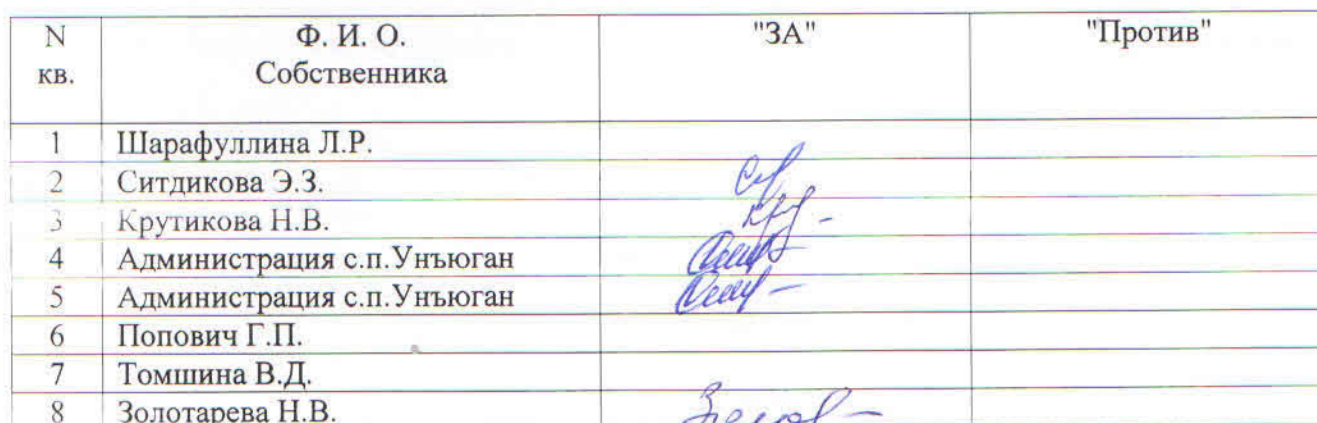 N кв. Ф. И. О. Собственника "ЗА" "Против"
1 Шарафуллина Л.Р.
2 Ситдикова Э.З.
3 Крутикова Н.В.
4 Администрация с.п.Унъюган
5 Администрация с.п.Унъюган
6 Попович Г.П.
7 Томшина В.Д.
8 Золотарева Н.В.